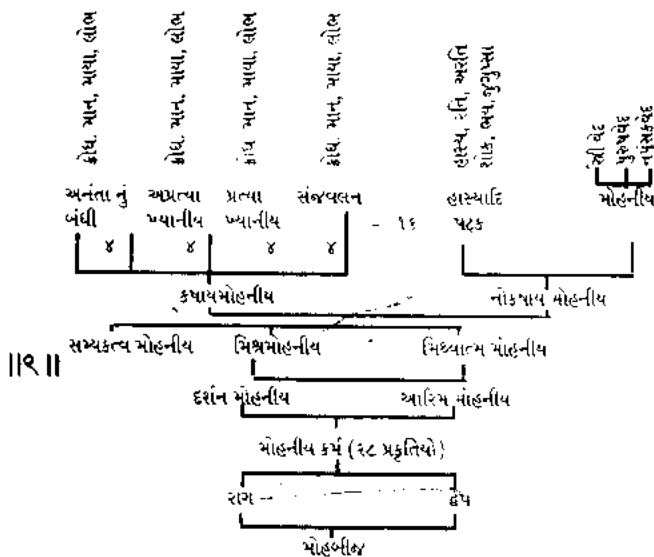 ક્રોધ. માન, માયા, લોભ
ક્રોધ. માન, માયા, લોભ
ક્રોધ માન, માયા, લોભ
ક્રોધ. માન, માયા, લોભ
હાસ્ય, રતિ, અરતિ
શોક, ભય, જુગુપ્સા
સ્ત્રી વેદ
પુરુષવેદ
નપુંસકવેદ
અનંતા નું અપ્રત્યા પ્રત્યા સંજવલન હાસ્યાદિ મોહનીય
બંધી ખ્યાનીય ખ્યાનીય – ૧૬ ષટ્ક
૪ ૪ ૪ ૪
કષાયમોહનીય નોકષાય મોહનીય
સમ્યકત્વ મોહનીય મિશ્રમોહનીય મિથ્યાત્મ મોહનીય
||૨||
દર્શન મોહનીય આરિમ મોહનીય
મોહનીય કર્મ (૨૮ પ્રકૃતિયો)
રાગ દ્વેષ
મોહબીજ